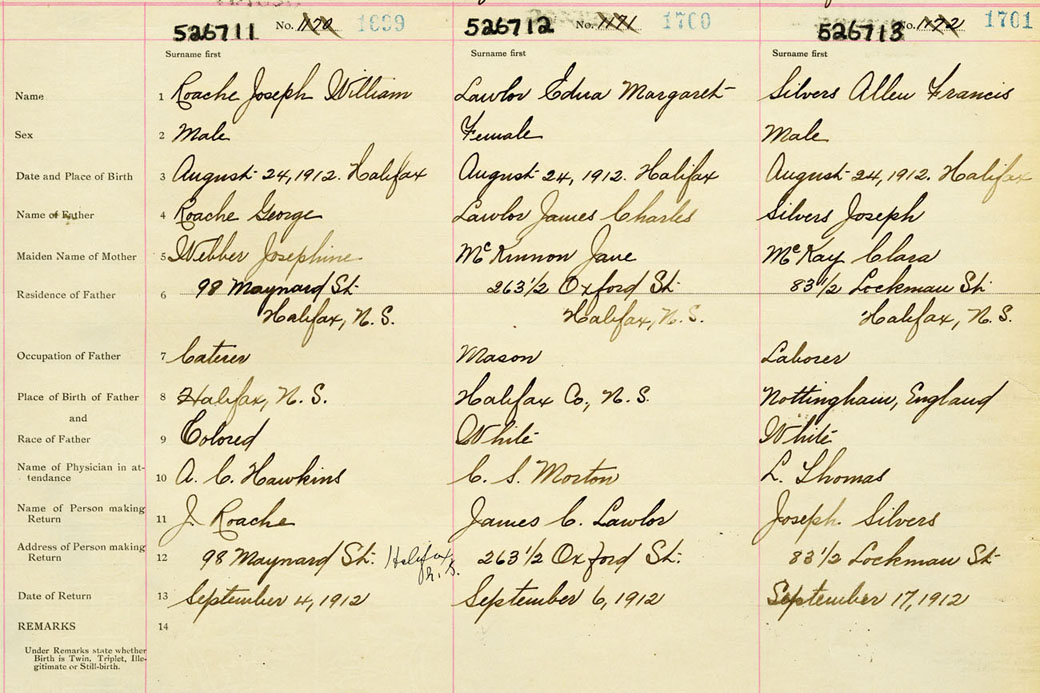 526711 No. 1170 1699 526712 No. 1171 1700 526713 No. 1172 1701
Surname first Surname first Surname first
Name 1 Roache Joseph William Lawlor Edna Margaret Silvers Allen Francis
Sex 2 Male Female Male
Date and Place of Birth 3 August 24, 1912. Halifax August 24, 1912. Halifax August 24, 1912. Halifax
Name of Father 4 Roache George Lawlor James Charles Silvers Joseph
Maiden Name of Mother 5 Webber Josephine McKinnon Jane McKay Clara
Residence of Father 6 98 Maynard St. 263 1/2 Oxford St. 83 1/2 Lockman St.
Halifax, N.S. Halifax, N.S. Halifax, N.S.
Occupation of Father 7 Caterer Mason Laborer
Place of Birth of Father 8 Halifax, N.S. Halifax Co, N.S. Nottingham, England
and
Race of Father 9 Colored White White
Name of Physician in at-
tendance 10 A. C. Hawkins C. S. Morton L. Thomas
Name of Person making
Return 11 J. Roache James C. Lawlor Joseph. Silvers
Address of Person making
Return 12 98 Maynard St. Halifax N.S. 263 1/2 Oxford St. 83 1/2 Lockman St
Date of Return 13 September 4, 1912 September 6, 1912 September 17, 1912
REMARKS 14
Under Remarks state whether
Birth is Twin, Triplet, Ille-
gitimate or Still-birth.